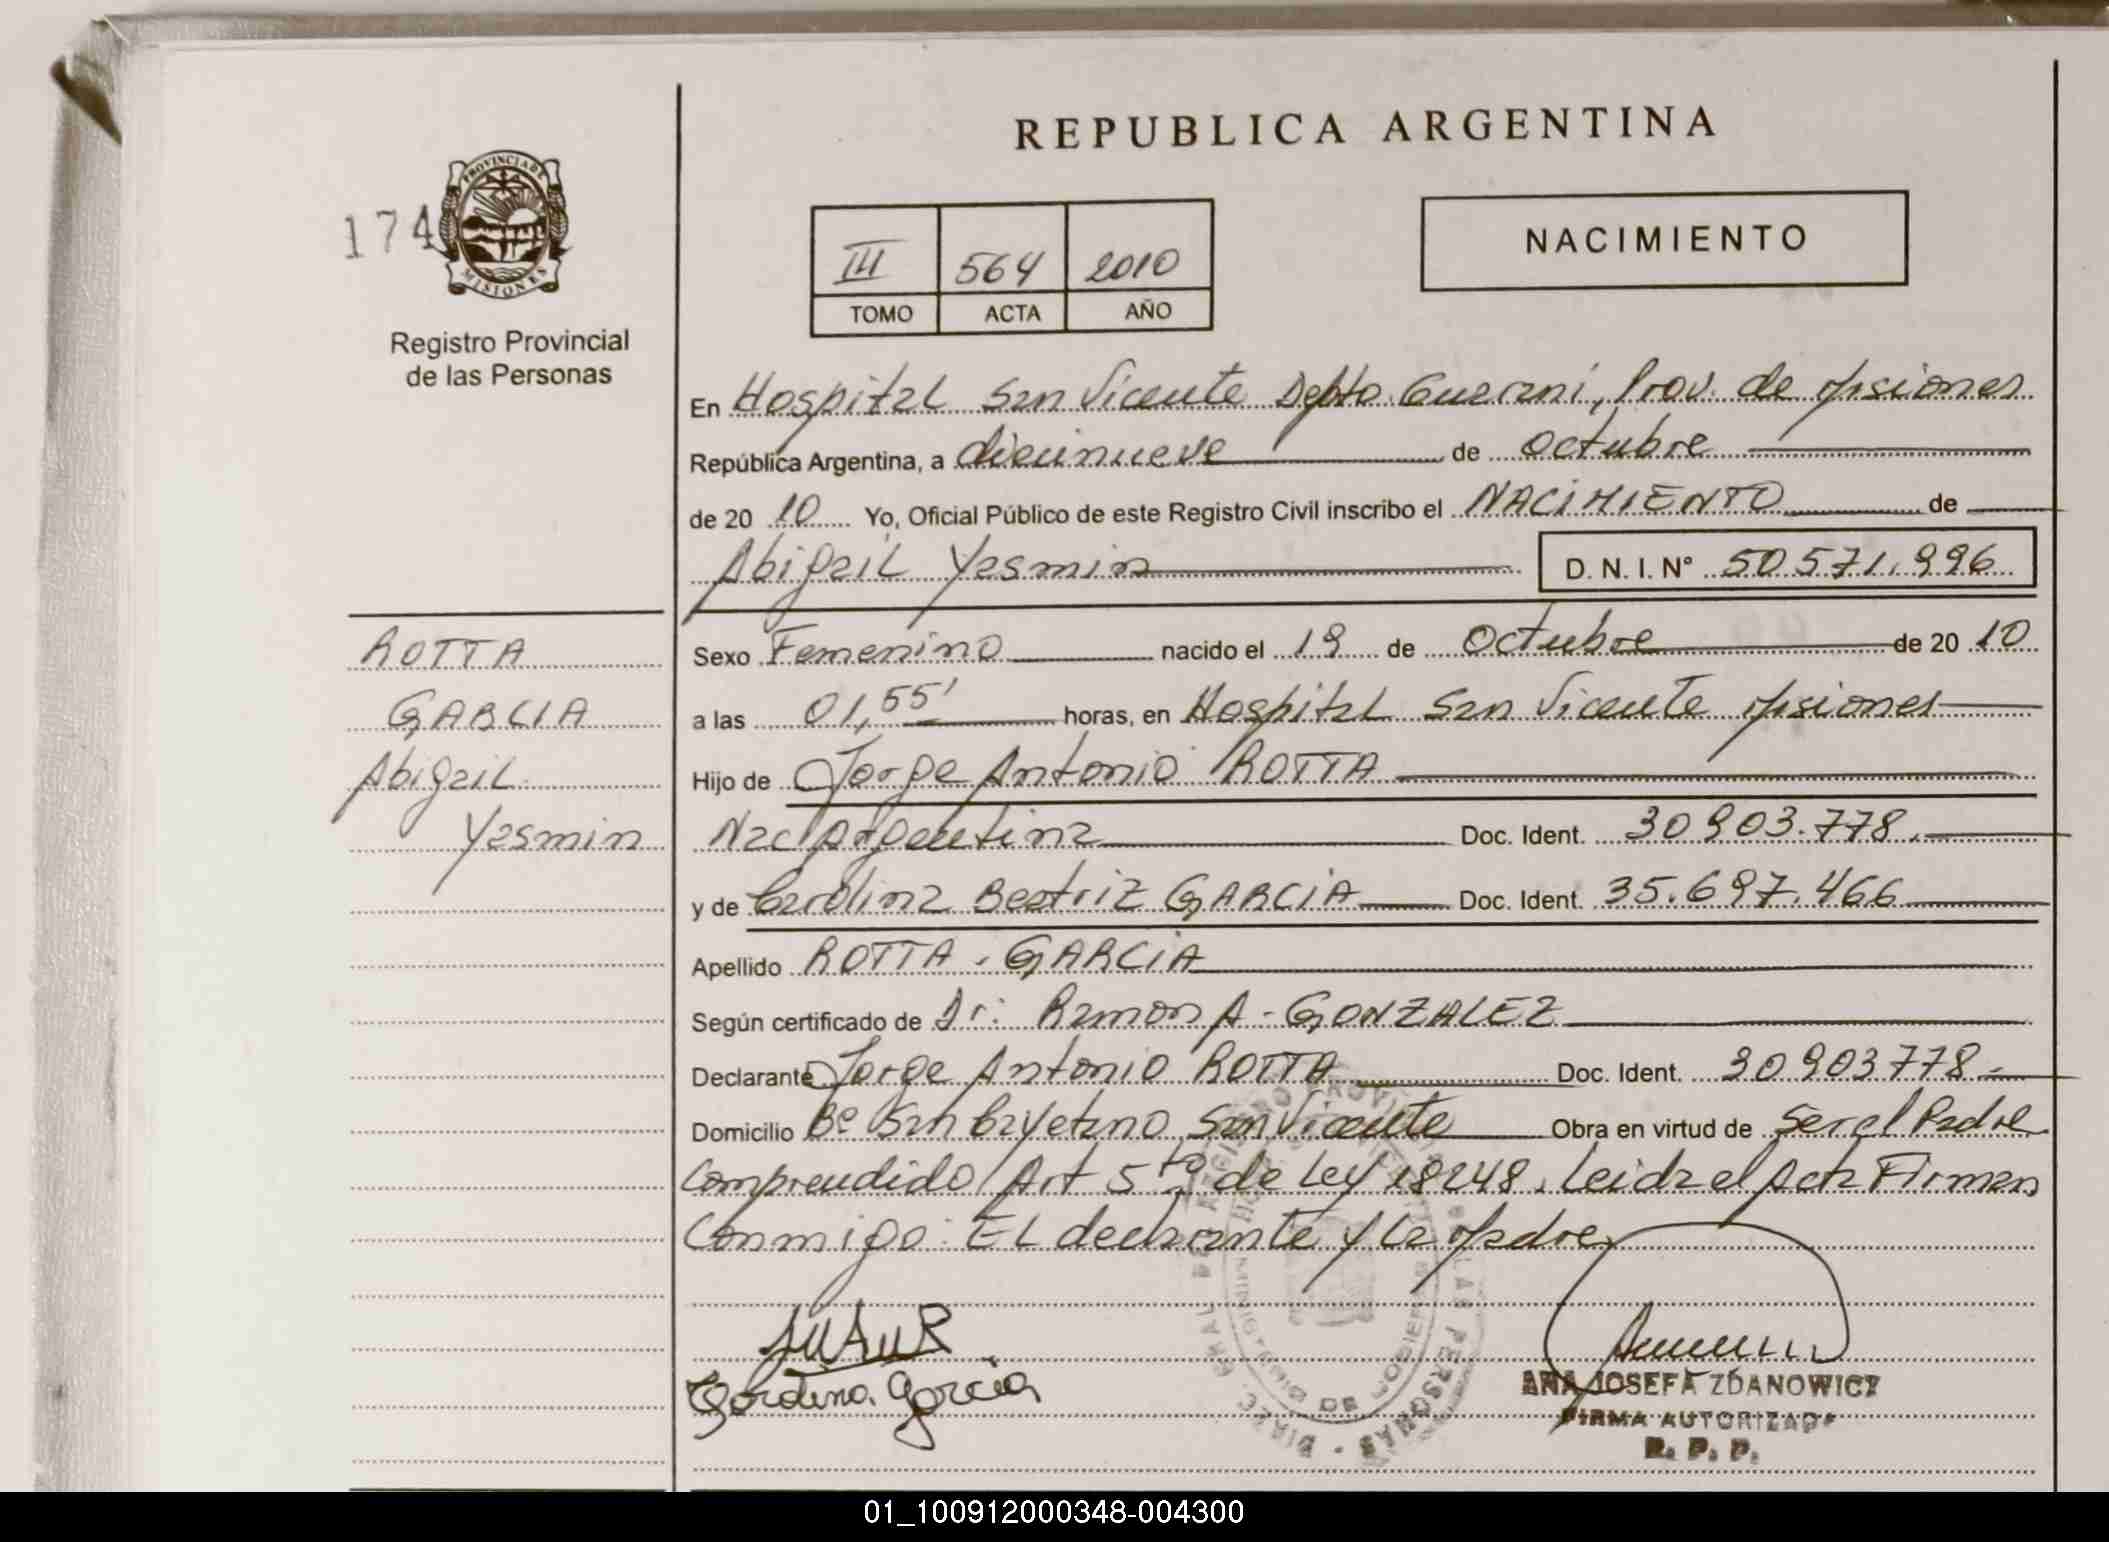 REPUBLICA ARGENTINA
PROVINCIA DE
MISIONES
174
Registro Provincial
de las Personas
III 564 2010
TOMO ACTA AÑO
NACIMIENTO
En Hospital San Vicente Depto. Guarani, Prov. de Misiones
República Argentina, a diecinueve de Octubre
de 20 10 Yo, Oficial Público de este Registro Civil inscribo el NACIMIENTO de
Abigail Yasmin D. N. I. N° 50.571.996
ROTTA
GARCIA
Abigail
Yasmin
Sexo Femenino nacido el 19 de Octubre de 20 10
a las 01,55' horas, en Hospital San Vicente Misiones
Hijo de Jorge Antonio ROTTA
Nac Argentina Doc. Ident. 30903.778.
y de Carolina Beatriz GARCIA Doc. Ident. 35.697.466
Apellido ROTTA - GARCIA
Según certificado de Dr: Ramon A - GONZALEZ
Declarante Jorge Antonio ROTTA Doc. Ident. 30903778-
Domicilio Bº San Cayetano San Vicente Obra en virtud de Ser el Padre
Comprendido Art 5to de Ley 18248. Leida el Acta Firman
Conmigo: EL declarante y la Madre
Carolina Garcia
ANA JOSEFA ZDANOWICZ
FIRMA AUTORIZADA
R. P. P.
01_100912000348-004300